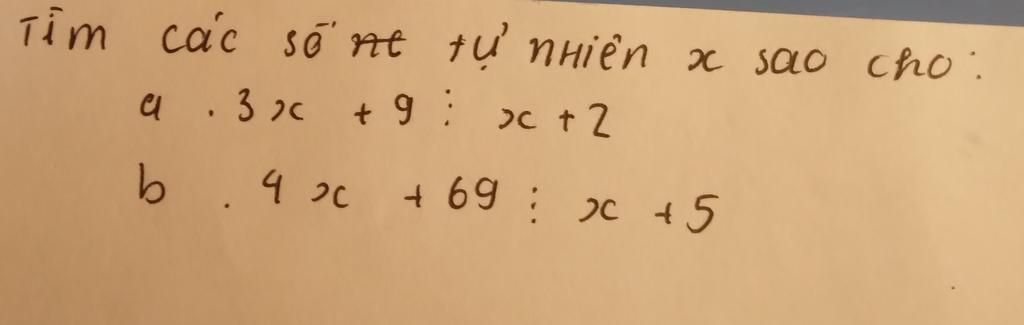 Tìm các số tự nhiên x sao cho:
a. 3x + 9 ⋮ x + 2
b. 4x + 69 ⋮ x + 5